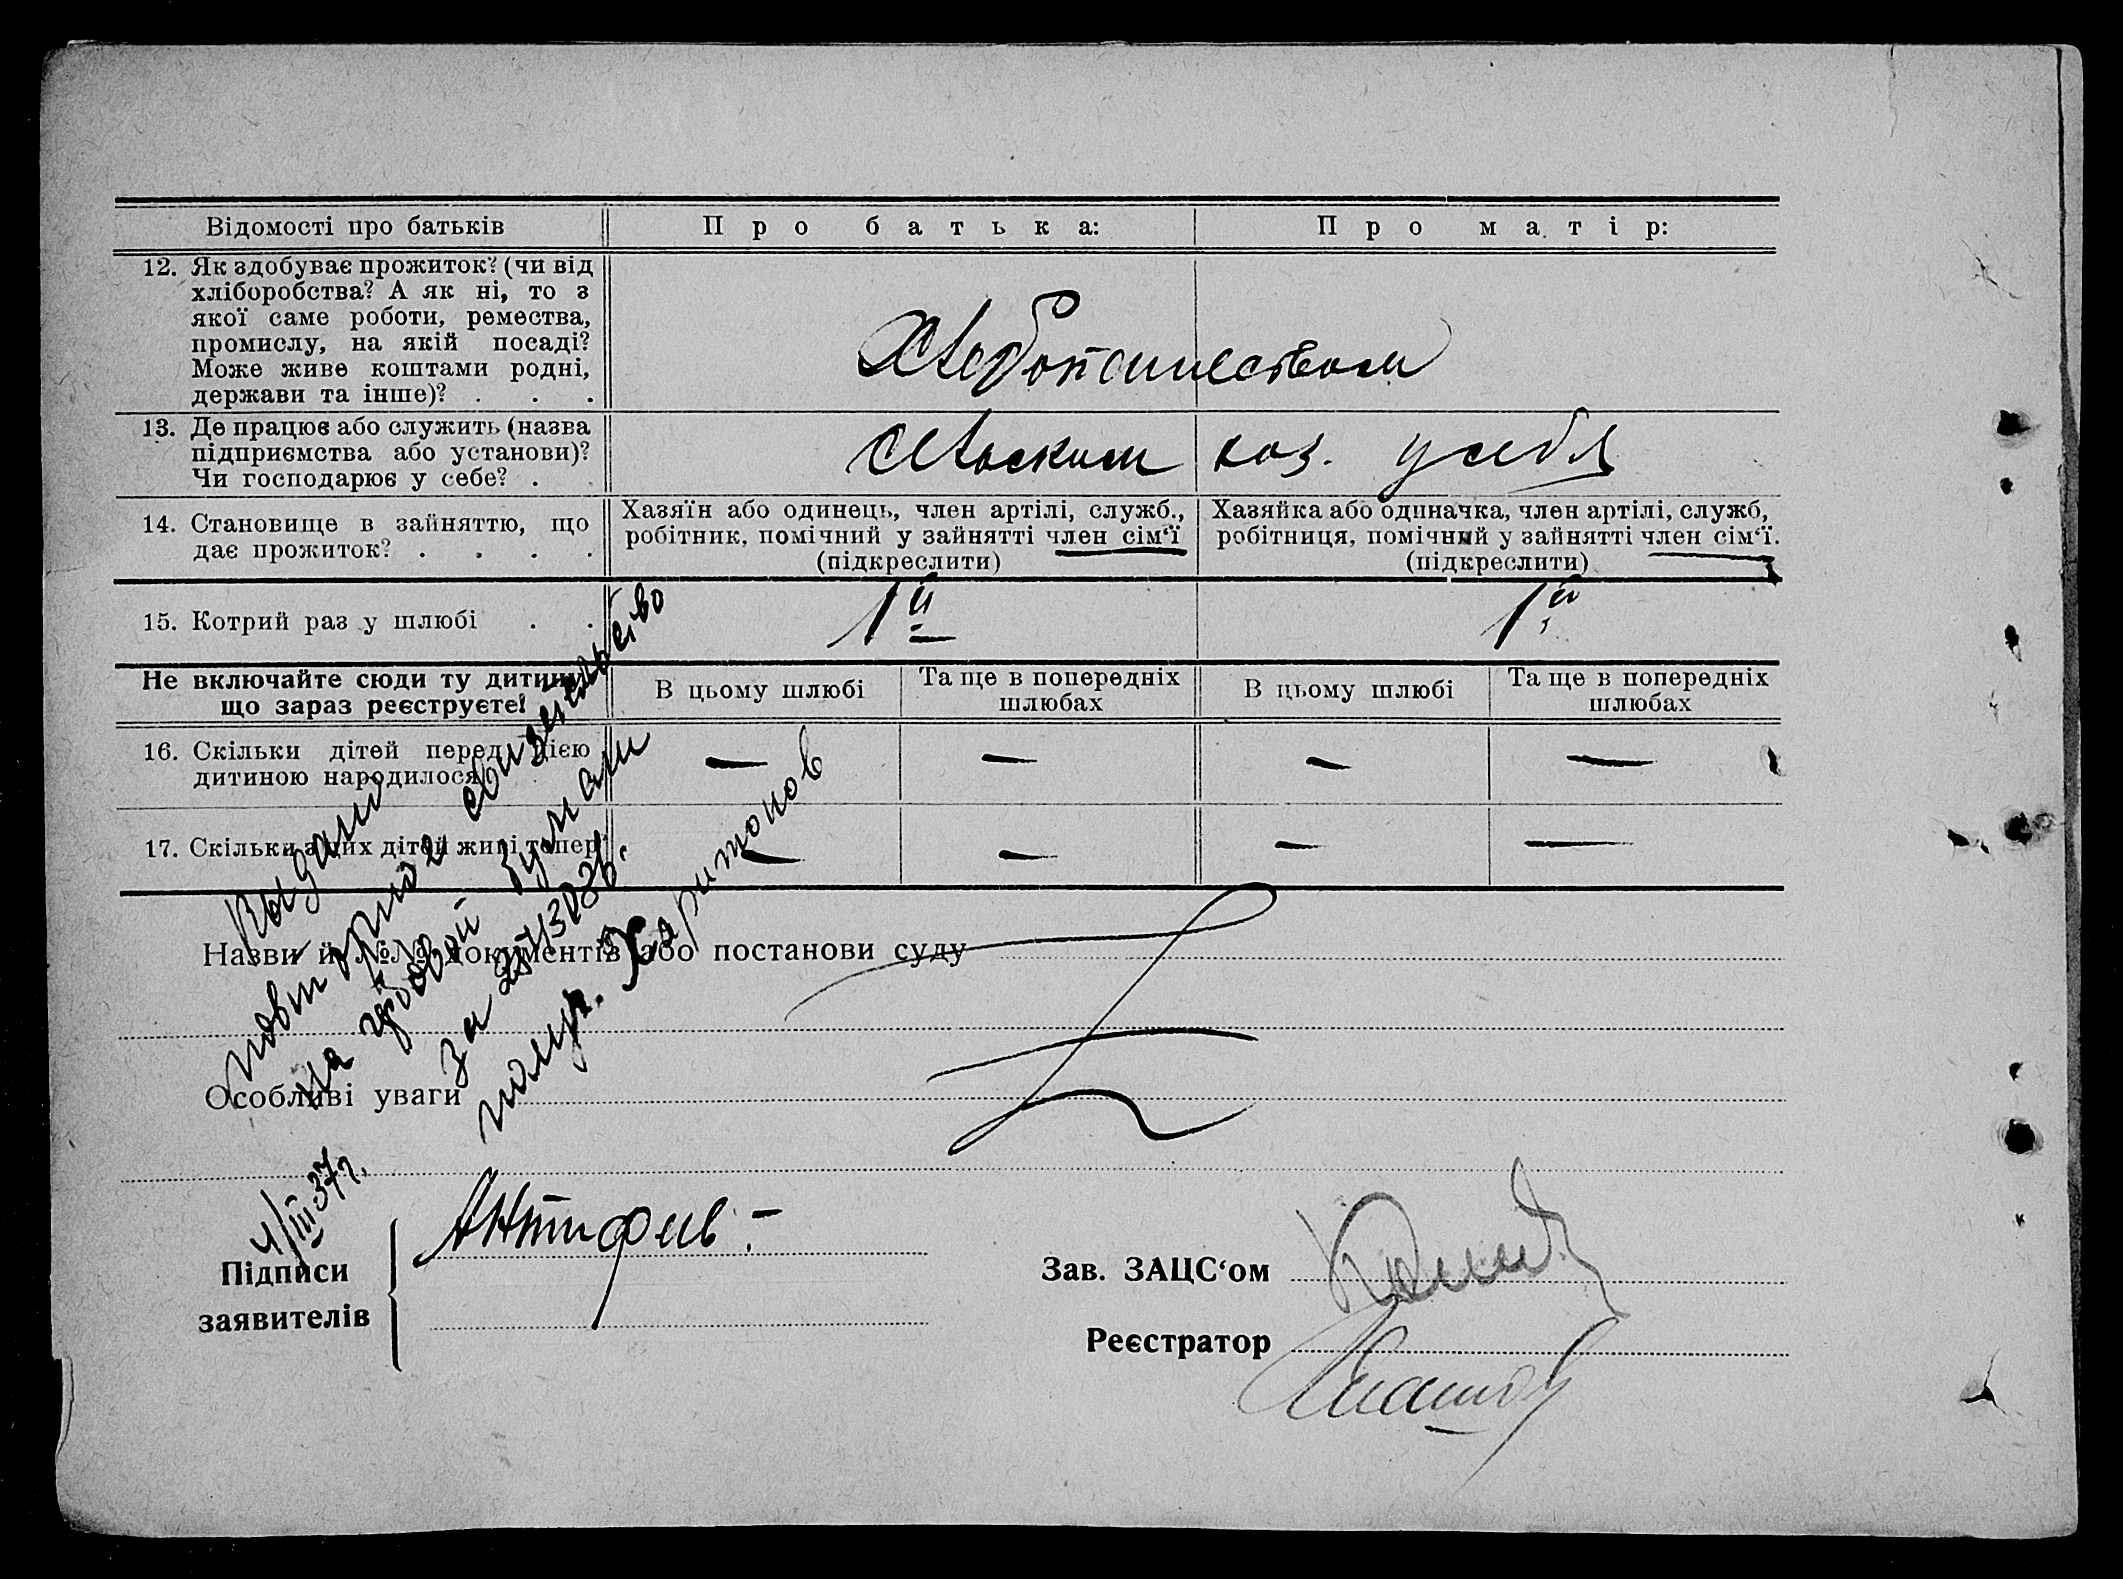 Відомості про батьків
Про батька:
Про матір:
12. Як здобуває прожиток? (чи від
хліборобства? А як ні, то з
якої саме роботи, ремества,
промислу, на якій посаді?
Може живе коштами родні,
держави та інше)? . . .
Хлебопашеством
13. Де працює або служить (назва
підприємства або установи)?
Чи господарює у себе? .
сельским хоз. у себя
14. Становище в зайняттю, що
дає прожиток? . . . .
Хазяїн або одинець, член артілі, служб.,
робітник, помічний у зайнятті член сім‘ї
(підкреслити)
Хазяйка або одиначка, член артілі, служб,
робітниця, помічний у зайнятті член сім‘ї.
(підкреслити)
15. Котрий раз у шлюбі . .
1й
1й
Не включайте сюди ту дитину
що зараз реєструєте!
В цьому шлюбі
Та ще в попередніх
шлюбах
В цьому шлюбі
Та ще в попередніх
шлюбах
16. Скільки дітей перед цією
дитиною народилося
— — — —
17. Скільки з цих дітей живі тепер
— — — —
Выдано
повторное свидетельство
на гербовой бумаги
за
получ. Харитонов
Назви й №№ документів або постанови суду
Особливі уваги
4/III 37 г.
Підписи
заявителів
Антифив. —
Зав. ЗАЦС‘ом
Реєстратор